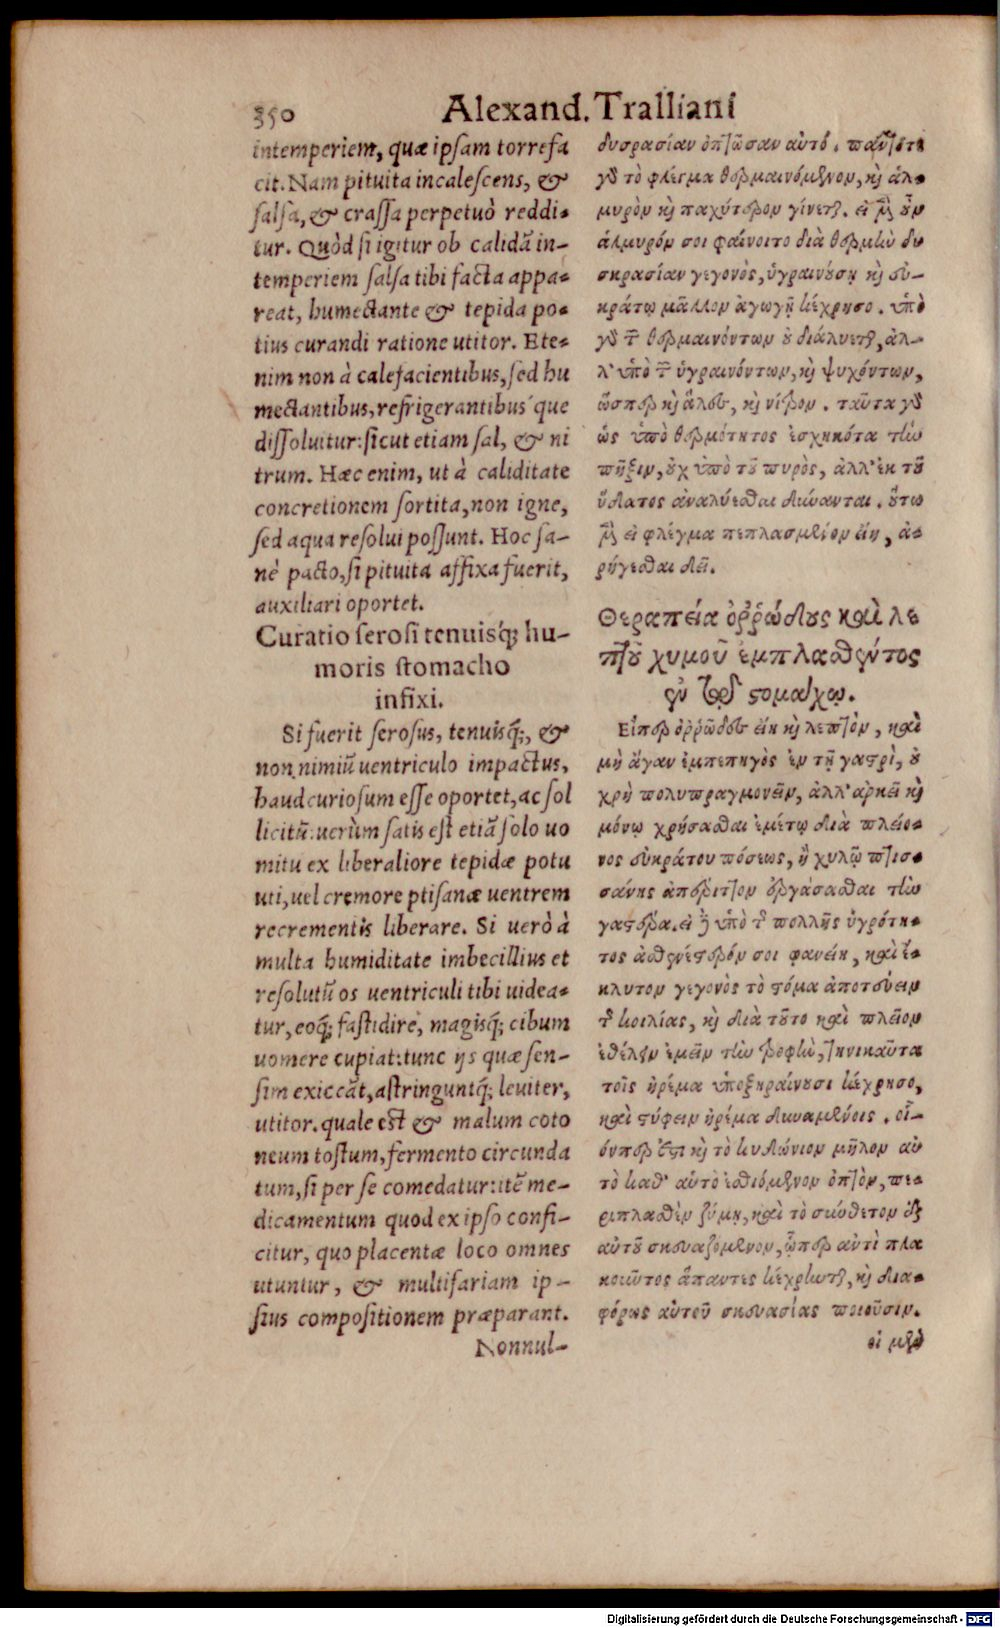 350
Alexand. Tralliani
intemperiem, quæ ipsam torrefa
cit. Nam pituita incalescens, &
salsa, & crassa perpetuò reddi-
tur. Quòd si igitur ob calidā in-
temperiem salsa tibi facta appa-
reat, humectante & tepida po-
tius curandi ratione utitor. Ete-
nim non à calefacientibus, sed hu
mectantibus, refrigerantibusque
dissoluitur: sicut etiam sal, & ni
trum. Hæc enim, ut à caliditate
concretionem sortita, non igne,
sed aqua resolui possunt. Hoc sa-
nè pacto, si pituita affixa fuerit,
auxiliari oportet.
Curatio serosi tenuisq́; hu-
moris stomacho
infixi.
Si fuerit serosus, tenuisq́;, &
non nimiū uentriculo impactus,
haud curiosum esse oportet, ac sol
licitū: uerùm satis est etiā solo uo
mitu ex liberaliore tepidæ potu
uti, uel cremore ptisanæ uentrem
recrementis liberare. Si uerò à
multa humiditate imbecillius et
resolutū os uentriculi tibi uidea-
tur, eoq́; fastidire, magisq́; cibum
uomere cupiat: tunc ijs quæ sen-
sim exiccāt, astringuntq́; leuiter,
utitor. quale est & malum coto
neum tostum, fermento circunda
tum, si per se comedatur: itē me-
dicamentum quod ex ipso confi-
citur, quo placentæ loco omnes
utuntur, & multifariam ip-
sius compositionem præparant.
Nonnul-
δυσρασίαν ὀπτῶσαν αὐτό. πάντοτε
γὸ τὸ φλέγμα θερμαινόμενον, κὶ ἁλ-
μυρὸν κὶ παχύτερον γίνεται. εἰ μὲν οὖν
ἁλμυρόν σοι φαίνοιτο διὰ θερμὴν δυ
σκρασίαν γεγονὸς, ὑγραινούσῃ κὶ εὐ-
κράτῳ μᾶλλον ἀγωγῇ κέχρησο. ὑπὸ
γὸ τῶν θερμαινόντων οὐ διάλυεται, ἀλ-
λ' ὑπὸ τῶν ὑγραινόντων, κὶ ψυχόντων,
ὥσπερ κὶ ἅλες, κὶ νίτρον. ταῦτα γὸ
ὡς ὑπὸ θερμότητος ἐσχηκότα τὴν
πῆξιν, οὐχ ὑπὸ τοῦ πυρὸς, ἀλλ' ἐκ τοῦ
ὕδατος ἀναλύεσθαι δύνανται. οὕτω
μὲν εἰ φλέγμα πεπλασμένον εἴη, ἀ-
ρήγεσθαι δεῖ.
Θεραπεία ὀῤῥώδους καὶ λε
πτοῦ χυμοῦ ἐμπλασθέντος
ἐν τῷ στομάχῳ.
Εἴπερ ὀῤῥῶδες εἴη κὶ λεπτὸν, καὶ
μὴ ἄγαν ἐμπεπηγὸς ἐν τῇ γαστρὶ, οὐ
χρὴ πολυπραγμονεῖν, ἀλλ' ἀρκεῖ κὶ
μόνῳ χρήσασθαι ἐμέτῳ διὰ πλείο-
νος εὐκράτου πόσεως, ἢ χυλῷ πτισ-
σάνης ἀπέριττον ἐργάσασθαι τὴν
γαστέρα. εἰ δὲ ὑπὸ τῆς πολλῆς ὑγρότη-
τος ἀσθενέστερόν σοι φανείη, καὶ ἔ-
κλυτον γεγονὸς τὸ στόμα
τῆς κοιλίας, κὶ διὰ τοῦτο καὶ πλεῖον
ἐθέλειν ἐμεῖν τὴν τροφὴν, τηνικαῦτα
τοῖς ἠρέμα ὑποξηραίνουσι κέχρησο,
καὶ στύφειν ἠρέμα δυναμένοις. οἷ-
όνπερ ἐστι κὶ τὸ κυδώνιον μῆλον αὐ
τὸ καθ' αὑτὸ ἐσθιόμενον ὀπτὸν, πε-
ριπλασθὲν ζύμῃ, καὶ τὸ σύνθετον ἐξ
αὐτοῦ σκευαζόμενον, ᾧπερ ἀντὶ πλα
κοιῶτος ἅπαντες κέχρηνται, κὶ δια-
φόρως αὐτοῦ σκευασίας ποιοῦσιν.
οἱ μὲν
Digitalisierung gefördert durch die Deutsche Forschungsgemeinschaft - DFG